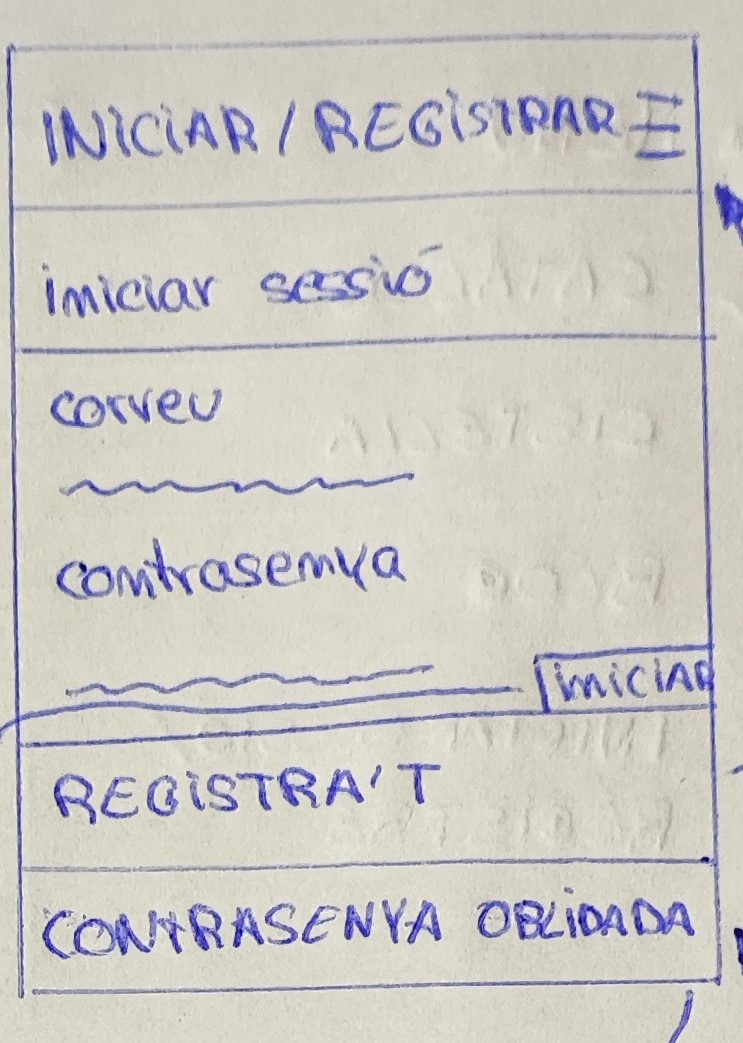 INICIAR / REGISTRAR
iniciar sessió
correu
contrasenya
INICIAR
REGISTRA'T
CONTRASENYA OBLIDADA